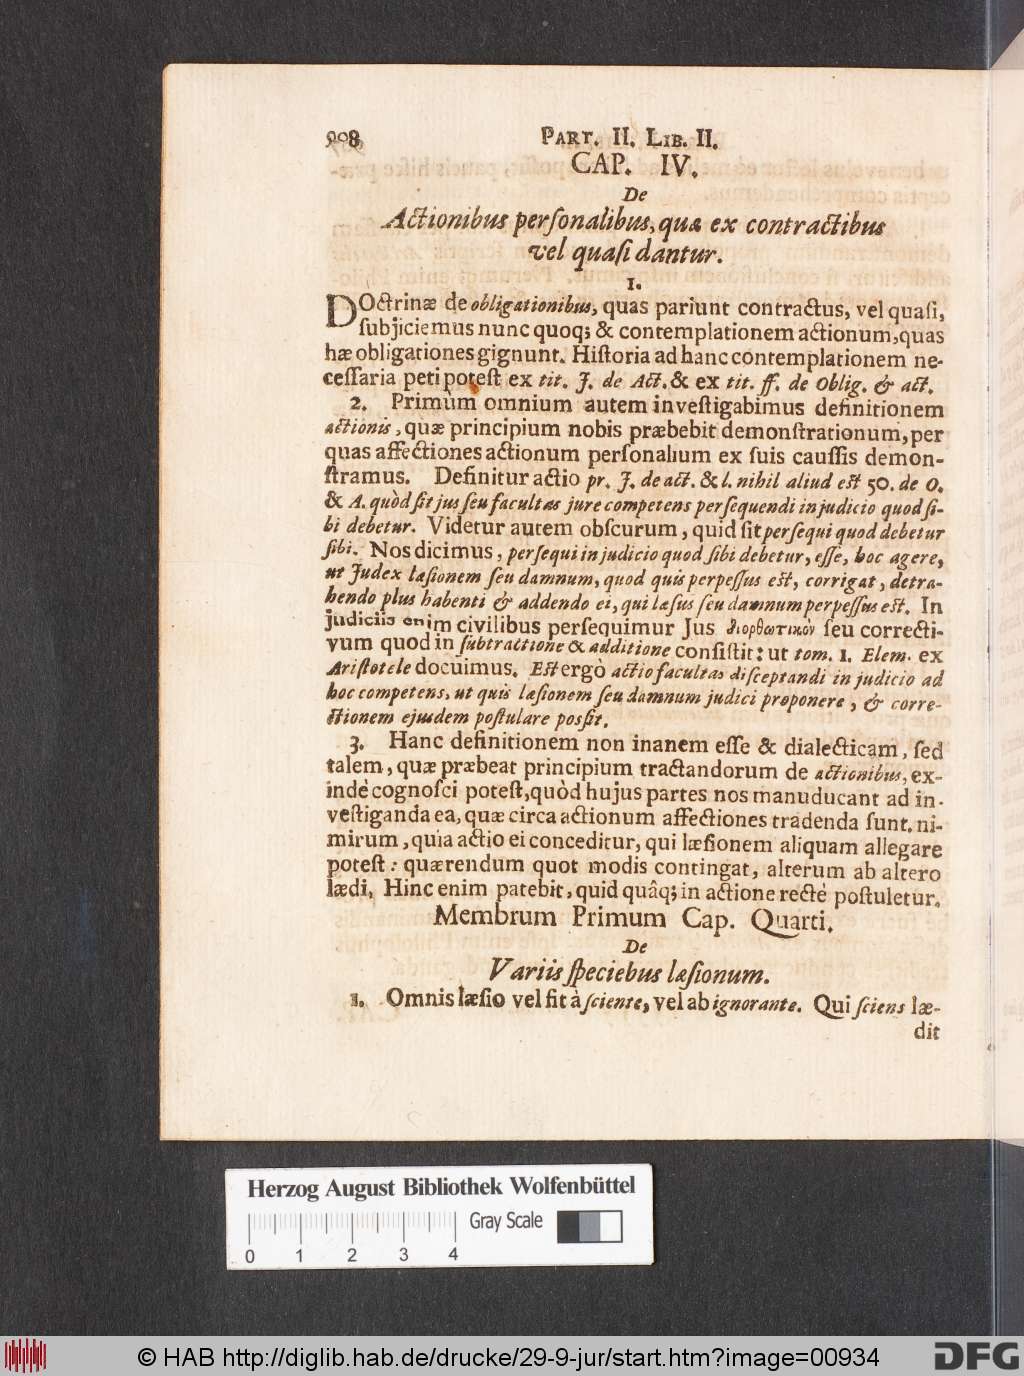 908
PART. II. LIB. II.
CAP. IV.
De
Actionibus perſonalibus, quæ ex contractibus
vel quaſi dantur.
1.
DOctrinæ de obligationibus, quas pariunt contractus, vel quaſi,
ſubjiciemus nunc quoq; & contemplationem actionum, quas
hæ obligationes gignunt. Hiſtoria ad hanc contemplationem ne-
ceſſaria peti poteſt ex tit. J. de Act. & ex tit. ff. de Oblig. & act.
2. Primùm omnium autem inveſtigabimus definitionem
actionis, quæ principium nobis præbebit demonſtrationum, per
quas affectiones actionum perſonalium ex ſuis cauſſis demon-
ſtramus. Definitur actio pr. J. de act. & l. nihil aliud eſt 50. de O.
& A. quòd ſit jus ſeu facultas jure competens perſequendi in judicio quod ſi-
bi debetur. Videtur autem obſcurum, quid ſit perſequi quod debetur
ſibi. Nos dicimus, perſequi in judicio quod ſibi debetur, eſſe, hoc agere,
ut Judex læſionem ſeu damnum, quod quis perpeſſus eſt, corrigat, detra-
hendo plus habenti & addendo ei, qui læſus ſeu damnum perpeſſus eſt. In
judiciis enim civilibus perſequimur Jus διορθωτικὸν ſeu correcti-
vum quod in ſubtractione & additione conſiſtit: ut tom. 1. Elem. ex
Ariſtotele docuimus. Eſt ergò actio facultas diſceptandi in judicio ad
hoc competens, ut quis læſionem ſeu damnum judici proponere, & corre-
ctionem ejusdem poſtulare poſſit.
3. Hanc definitionem non inanem eſſe & dialecticam, ſed
talem, quæ præbeat principium tractandorum de actionibus, ex-
inde cognoſci poteſt, quòd hujus partes nos manuducant ad in-
veſtiganda ea, quæ circa actionum affectiones tradenda ſunt. ni-
mirum, quia actio ei conceditur, qui læſionem aliquam allegare
poteſt: quærendum quot modis contingat, alterum ab altero
lædi. Hinc enim patebit, quid quâq; in actione rectè poſtuletur.
Membrum Primum Cap. Quarti.
De
Variis ſpeciebus læſionum.
1. Omnis læſio vel fit à ſciente, vel ab ignorante. Qui ſciens læ-
dit
Herzog August Bibliothek Wolfenbüttel
Gray Scale
0 1 2 3 4
© HAB http://diglib.hab.de/drucke/29-9-jur/start.htm?image=00934
DFG